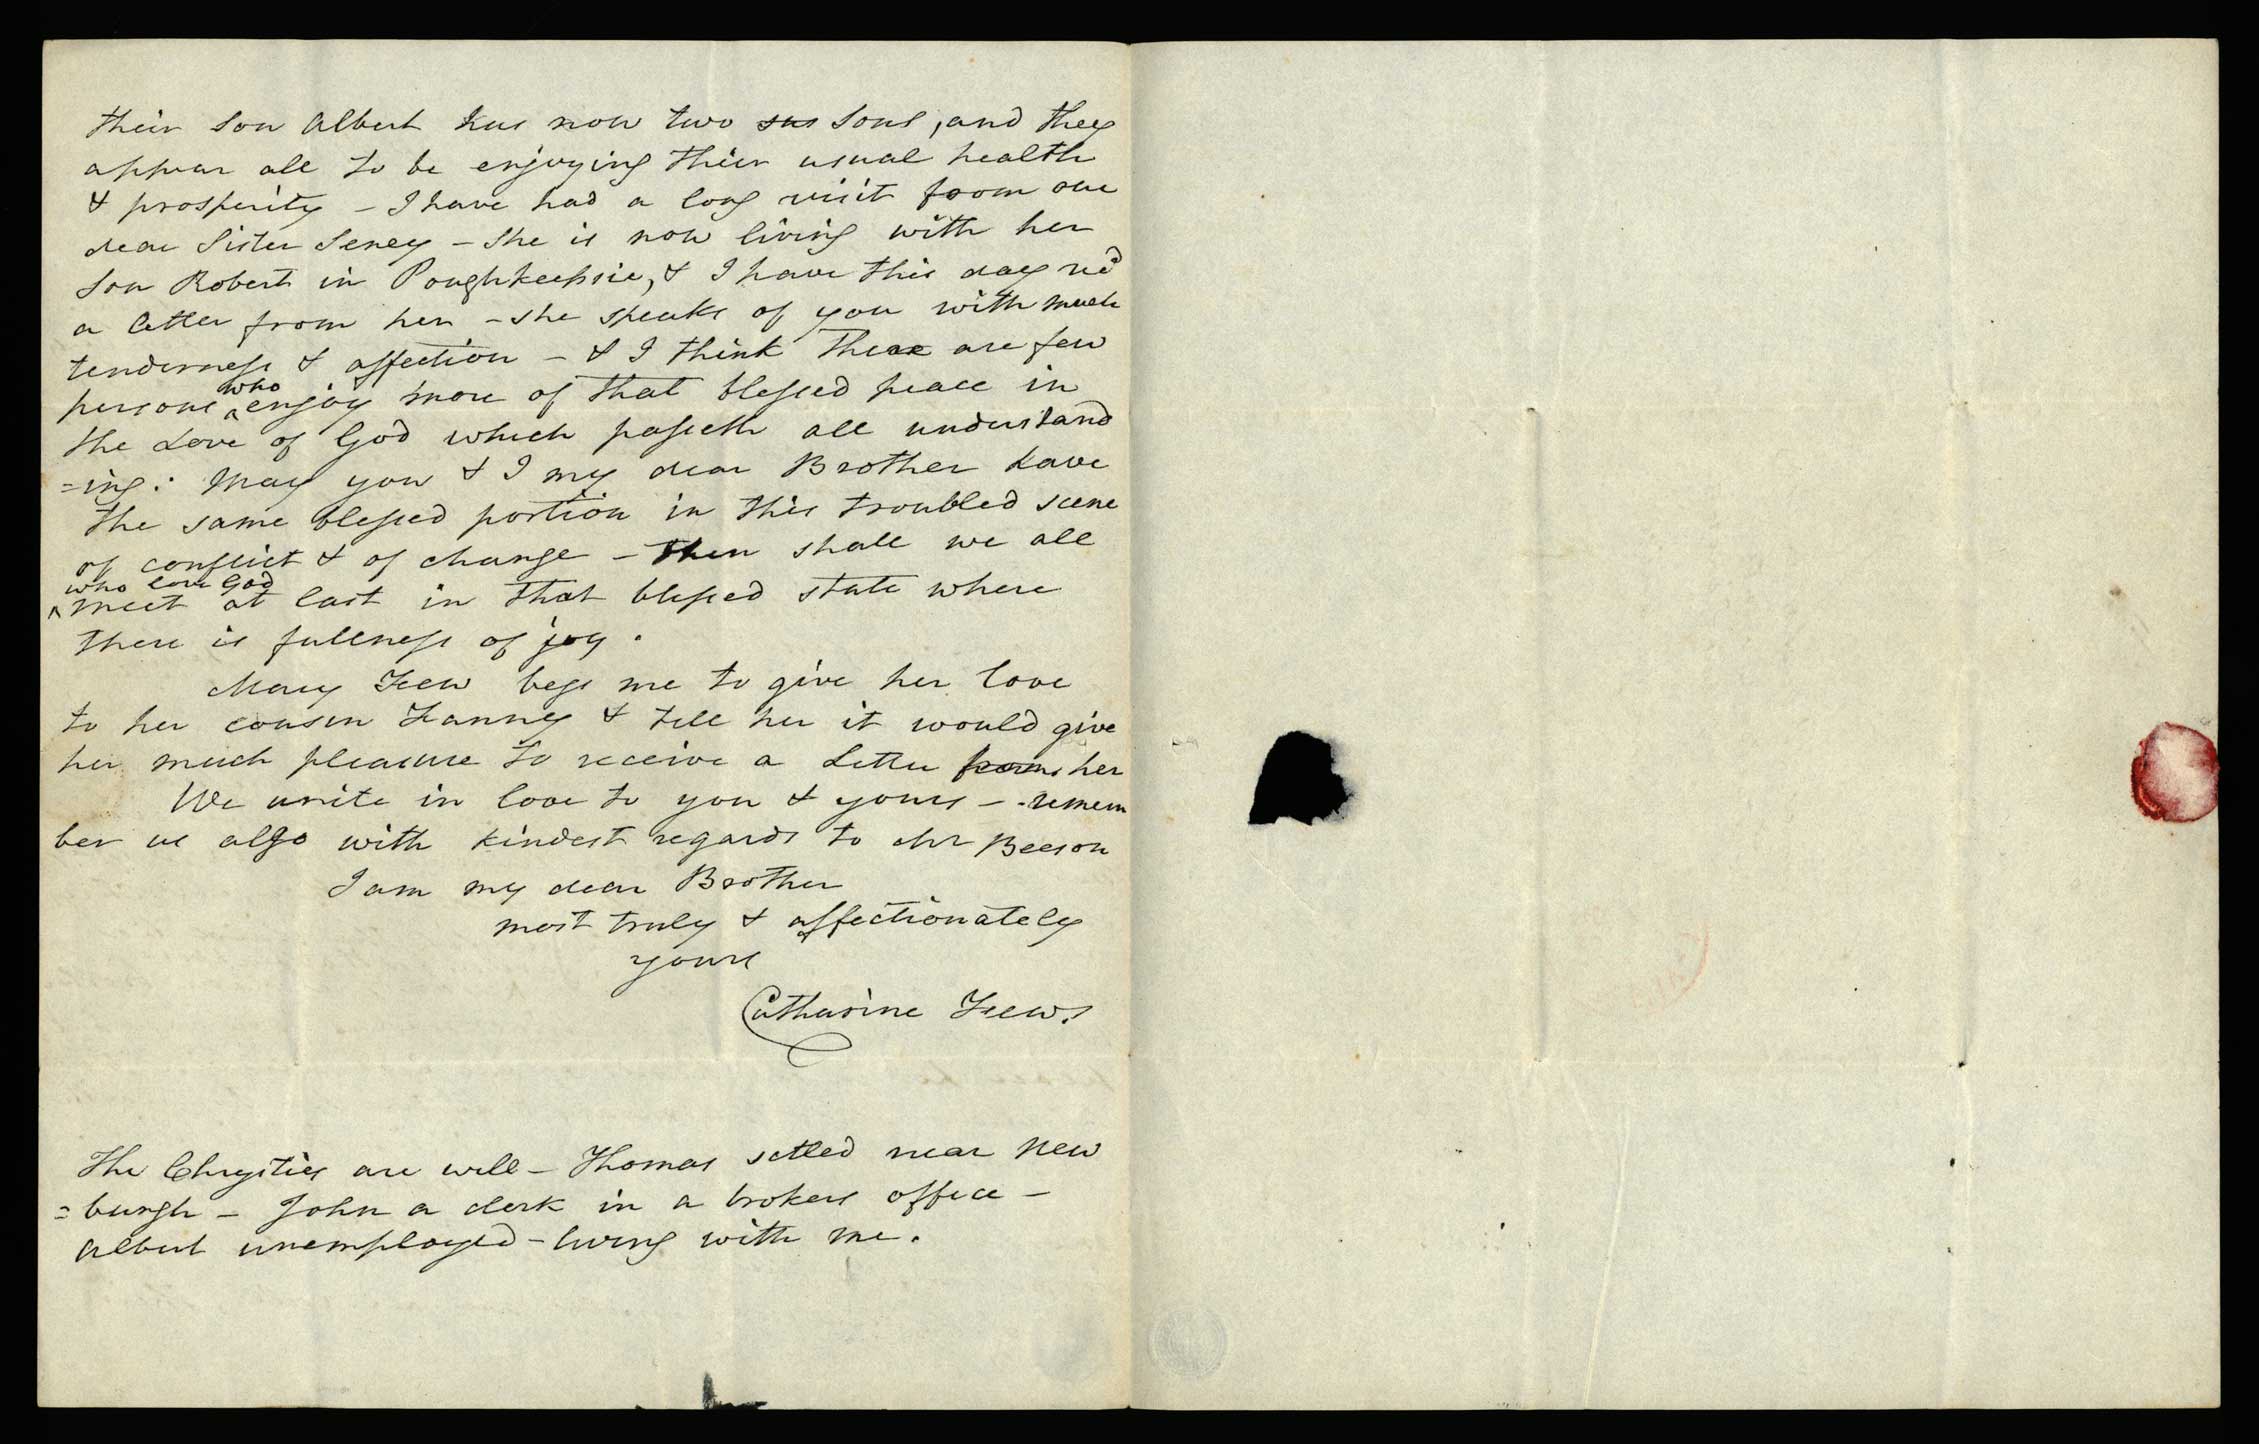 their son Albert has now two sns sons, and they
appear all to be enjoying thier usual health
& prosperity – I have had a long visit from our
dear Sister Seney – She is now living with her
son Robert in Poughkeepsie, & I have this day re'd
a letter from her – she speaks of you with much
tenderness & affection – & I think there are few
persons who enjoy more of that blessed peace in
the Love of God which passeth all understand
=ing: May you & I my dear Brother have
the same blessed portion in this troubled scene
of conflict & of change – Then shall we all
who love God
meet at last in that blessed state where
there is fullness of joy.
Mary Few begs me to give her love
to her cousin Fanny & tell her it would give
her much pleasure to receive a Letter from her
We unite in love to you & yours – remem
ber us also with kindest regards to Mr Beeson
I am my dear Brother
most truly & affectionately
yours
Catharine Few.
The Chrysties are well – Thomas setled near New
=burgh – John a clerk in a brokers office –
Albert unemployed – living with me.